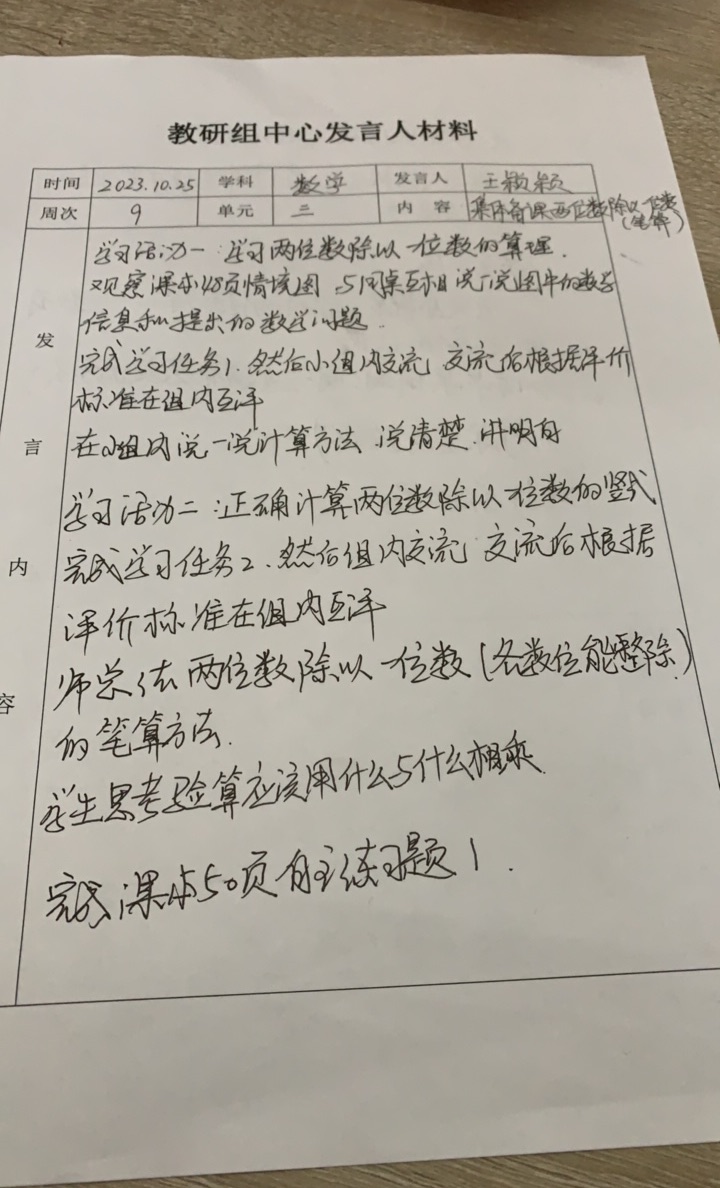 教研组中心发言人材料
时间 2023.10.25 学科 数学 发言人 王颖颖
周次 9 单元 三 内容 集体备课两位数除以一位数(笔算)
发言内容
学习活动一：学习两位数除以一位数的算理.
观察课本48页情境图,与同桌互相说一说图中的数学
信息和提出的数学问题.
完成学习任务1.然后小组内交流,交流后根据评价
标准在组内互评
在小组内说一说计算方法 说清楚.讲明白
学习活动二:正确计算两位数除以一位数的竖式
完成学习任务2.然后组内交流,交流后根据
评价标准在组内互评
师总结两位数除以一位数(各数位能整除)
的笔算方法.
学生思考验算应该用什么与什么相乘.
完成课本50页自主练习题1.